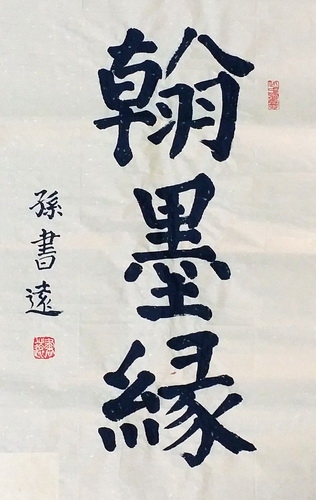 翰墨緣
孫書遠